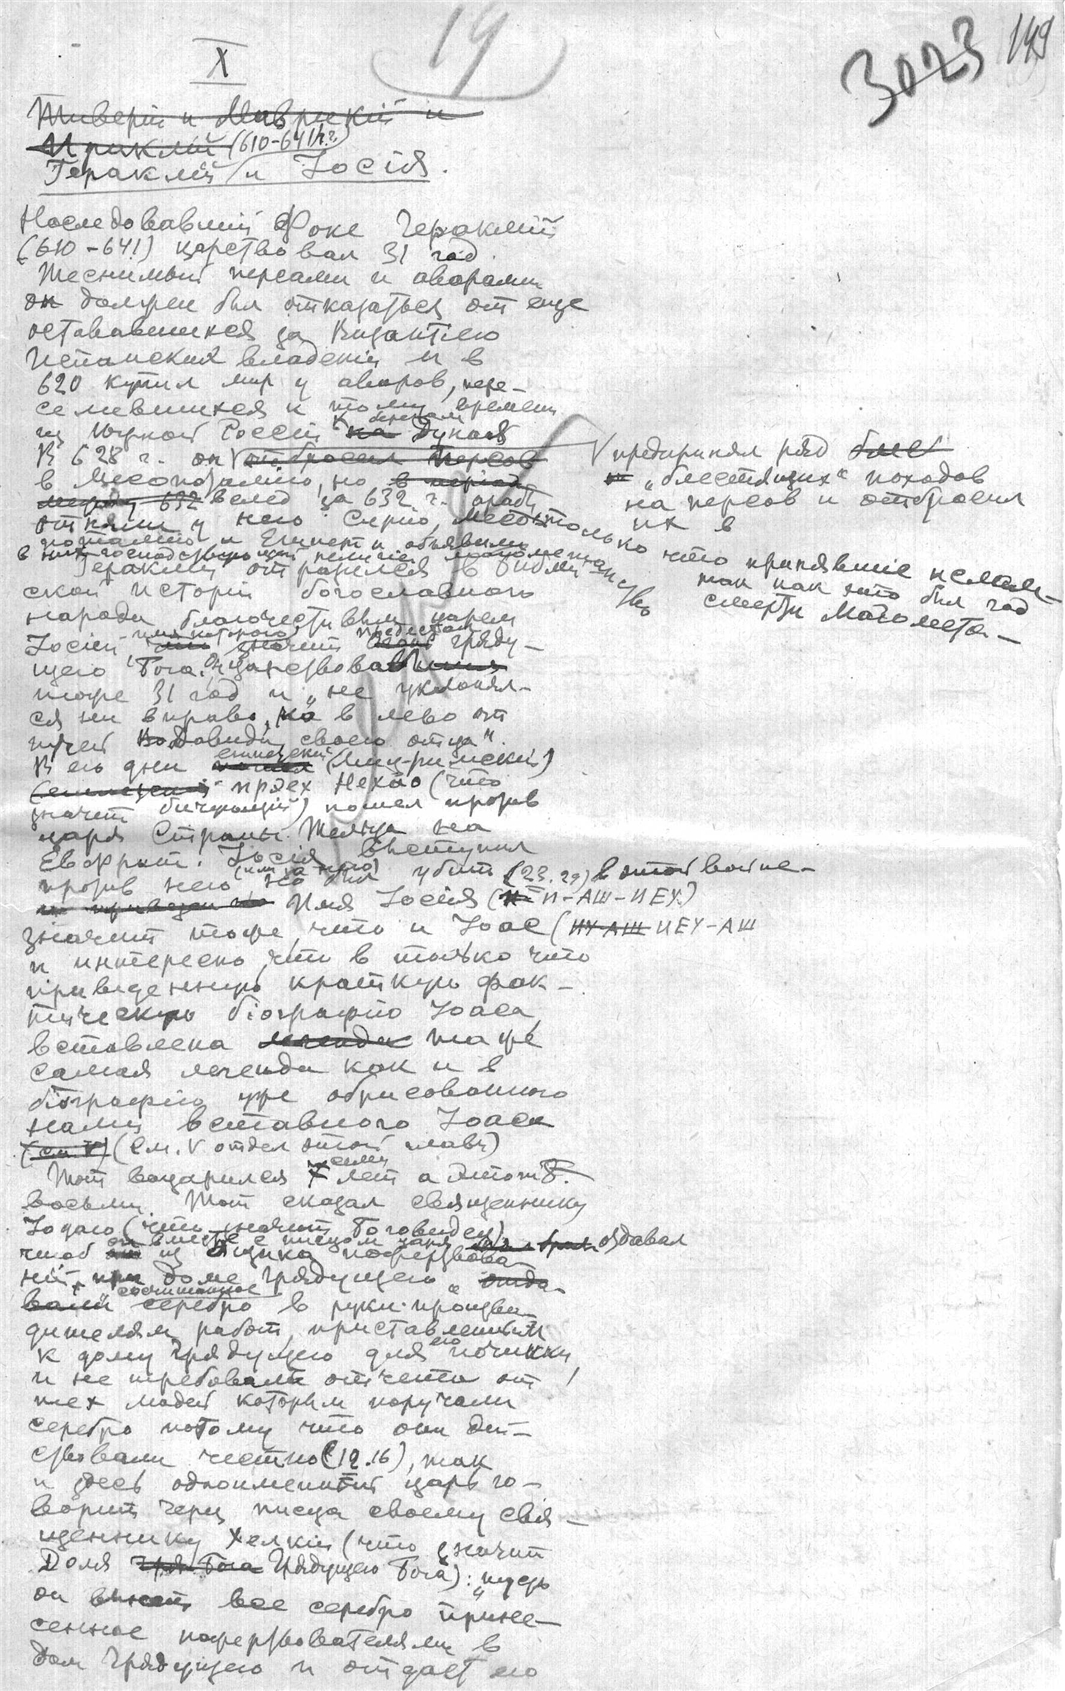 X
19
3023
149
Тиверій и Маврикій и
Ираклій (610-641 гг.)
Гераклій и Іосія.
Наследовавшій Фоке Гераклій
(610-641) царствовал 31 год.
Теснимый персами и аварами
он должен был отказаться от еще
остававшихся за Византіею
Испанских владеній и в
620 купил мир у аваров, пере-
селившихся к тому времени
из Южной Россіи на к берегам Дуная
В 628 г. он V отбросил персов
V предпринял ряд блес
„блестящих“ походов
на персов и отбросил
их в
в Месопотамію, но в период
между 632 вслед за 632 г. арабы
отняли у него Сирію, Месо-
потамію и Египет и объявили
в них господствующей религіей магометанство
только что принявшіе ислам
так как это был год
смерти Магомета.—
Гераклій отразился в библей-
ской исторіи богославного
народа благочестивым царем
Іосіей имя которого значит гряду-
щего Бога. Он царствовавшій
тоже 31 год и „не уклонял-
ся ни вправо, ни в лево от
путей Давида своего отца“.
В его дни египетскій (миц-римскій)
царь Нехао (что
значит бичующій) пошел против
царя Страны Тельца на
Евфрат. Іосія выступил
против него, но был убит (23.29) в этой войне—
Имя Іосія (И-АШ-ИЕУ)
значит тоже, что и Іоас (ИУ-АШ ИЕУ-АШ
и интересно, что в только что
приведенную краткую фак-
тическую біографію Іоаса
вставлена легенда таже
самая легенда как и в
біографію уже обрисованного
нами вставного Іоаса
(см. V) (См. V отдел этой главы)
Тот воцарился семи лет а этот 8.
восьми. Тот сказал священнику
Іодаю (что значит Боговидец)
чтоб он вместе с писцом царя отдавал
из ящика пожертвова-
ній при доме Грядущего „отда-
вали сосчитанное серебро в руки произво-
дителям работ, приставленным
к дому Грядущего для его починки,
и не требовали отчета от
тех людей которым поручали
серебро потому что они дей-
ствовали честно“ (12.16), так
и здесь одноименный царь го-
ворит через писца своему свя-
щеннику Хелкіи (что значит
Доля Гря Бога Грядущего Бога): „пусть
он все серебро прине-
сенное пожертвователями в
Дом Грядущего и отдает его